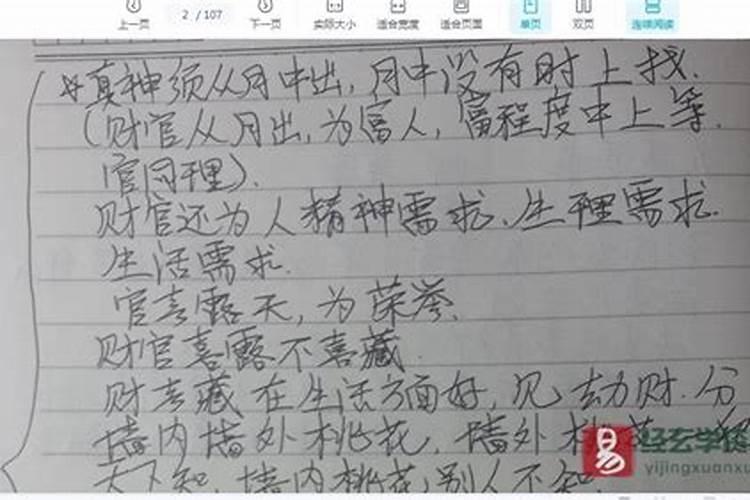 上一页 2 / 107 下一页 实际大小 适合宽度 适合页面 单页 双页 连续阅读
真神须从月中出，月中没有时上找．
(财官从月出，为富人，富程度中上等．
官同理)．
财官还为人精神需求、生理需求．
生活需求．
官喜露天，为荣誉．
财官喜露不喜藏．
财喜藏在生活方面好，见劫财．分
墙内墙外桃花，墙外
天下知，墙内桃花，别人不知
易 经玄学
yijingxuanxu